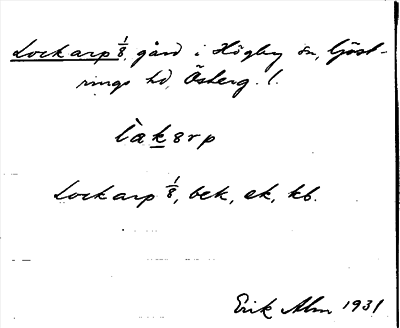 Lockarp 1/8, gård i Högby sn, Göst-
rings hd, Österg. l.
l̀akərp
Lockarp 1/8, bek, ek, kb.
Erik Alm 1931